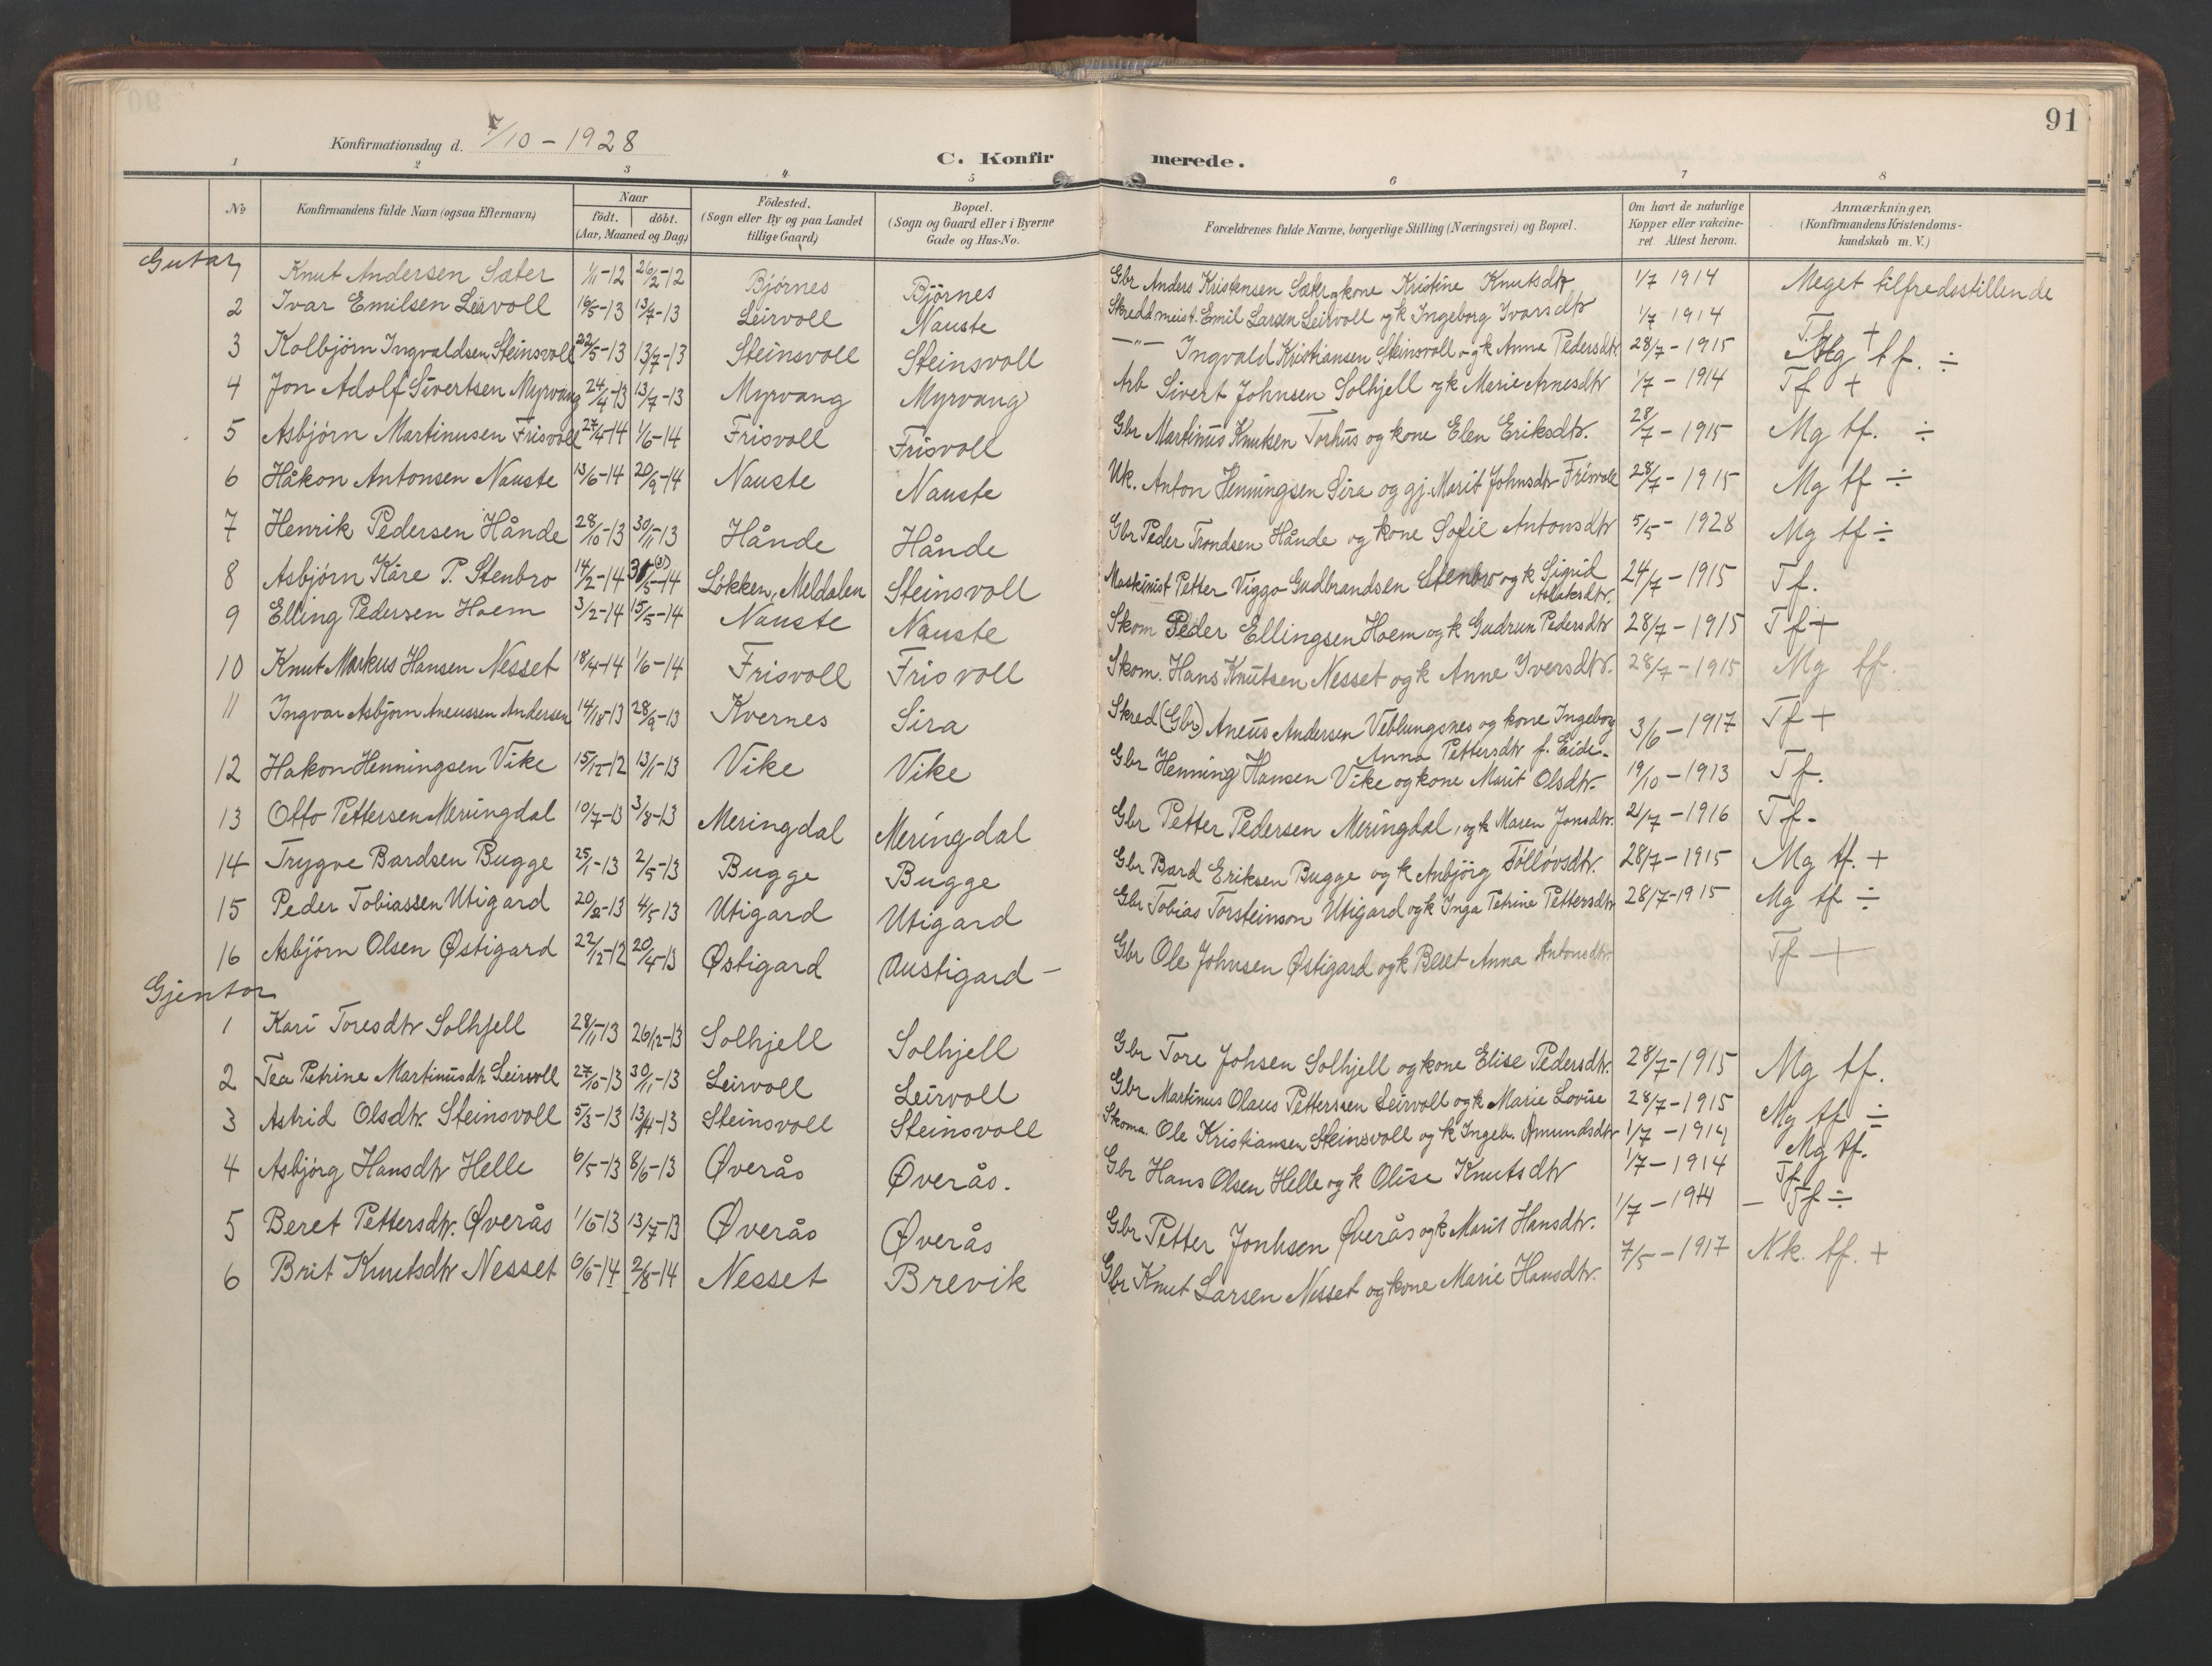 91
Konfirmationsdag d. 7/10 - 1928
C. Konfirmerede.
1 2 3 4 5 6 7 8
№ Konfirmandens fulde Navn (ogsaa Efternavn) Naar født. døbt. (Aar, Maaned og Dag.) Födested. (Sogn eller By og paa Landet tillige Gaard.) Bopæl. (Sogn og Gaard eller i Byerne Gade og Hus-No. Forældrenes fulde Navne, borgerlige Stilling (Næringsvei) og Bopæl. Om havt de naturlige Kopper eller vakcineret Attest herom. Anmærkninger. (Konfirmandens Kristendomskundskab m. V.)
Gutar
1 Knut Andersen Sæter 1/11-12 26/2-12 Bjørnes Björnes Gbr Anders Kristensen Sæter og kone Kristine Knutsdtr 1/7 1914 Meget tilfredsstillende
2 Ivar Emilsen Leirvoll 16/5-13 13/7-13 Leirvoll Nauste Skreddmeist. Emil Larsen Leirvoll og k Ingeborg Ivarsdtr 1/7 1914 Tf +
3 Kolbjörn Ingvaldsen Steinsvoll 22/5-13 13/7-13 Steinsvoll Steinsvoll —"— Ingvald Kristiansen Steinsvoll og k Anna Pedersdtr 28/7-1915 Mg tf. ÷
4 Jon Adolf Sivertsen Myrvang 24/4-13 13/7-13 Myrvang Myrvang Arb Sivert Johnsen Solhjell og k Marie Arnesdtr 1/7-1914 Tf +
5 Asbjørn Martinusen Frisvoll 27/4-14 1/6-14 Frisvoll Frisvoll Gbr Martinus Knutsen Torhus og kone Elen Eriksdtr. 28/7-1915 Mg tf. ÷
6 Håkon Antonsen Nauste 13/6-14 20/9-14 Nauste Nauste Uk. Anton Henningsen Sira og gj. Marit Johnsdtr Frisvoll 28/7-1915 Mg tf ÷
7 Henrik Pedersen Hånde 28/10-13 30/11-13 Hånde Hånde Gbr Peder Trondsen Hånde og kone Sofie Antonsdtr 5/5-1928 Mg tf ÷
8 Asbjørn Kåre P. Stenbro 14/2-14 31/5-14 Løkken, Meldalen Steinsvoll Maskinist Petter Viggo Gudbrandsen Stenbro og k Sigrid Aslaksdtr. 24/7-1915 Tf.
9 Elling Pedersen Hoem 3/2-14 15/5-14 Nauste Nauste Skom Peder Ellingsen Hoem og k Gudrun Pedersdtr 28/7-1915 Tf +
10 Knut Markus Hansen Nesset 18/4-14 1/6-14 Frisvoll Frisvoll Skom. Hans Knutsen Nesset og k Anne Iversdtr. 28/7-1915 Mg tf.
11 Ingvar Asbjørn Aneussen Andersen 28/9-13 Kvernes Sira Skred (Gbr) Aneus Andersen Veblungsnes og kone Ingeborg Anna Pettersdtr f. Eide. 3/6-1917 Tf +
12 Hakon Henningsen Vike 15/12-12 13/1-13 Vike Vike Gbr Henning Hansen Vike og kone Marit Olsdtr. 19/10-1913 Tf.
13 Otto Pettersen Meringdal 10/7-13 3/8-13 Meringdal Meringdal Gbr Petter Pedersen Meringdal, og k Maren Jonsdtr. 21/7-1916 Tf.
14 Trygve Bardsen Bugge 25/1-13 2/5-13 Bugge Bugge Gbr Bard Eriksen Bugge og k Anbjörg Föllövsdtr. 28/7-1915 Mg tf. +
15 Peder Tobiassen Utigard 20/2-13 4/5-13 Utigard Utigard Gbr Tobias Torsteinson Utigard og k Inga Petrine Pettersdtr 28/7-1915 Mg tf ÷
16 Asbjörn Olsen Østigard 22/12-12 20/4-13 Østigard Austigard — Gbr Ole Johnsen Østigard og k Beret Anna Antonsdtr. Tf +
Gjentor
1 Kari Toresdtr Solhjell 28/11-13 26/12-13 Solhjell Solhjell Gbr Tore Johsen Solhjell og kone Elise Pedersdtr. 28/7-1915 Mg tf.
2 Tea Petrine Martinusdtr Leirvoll 27/10-13 30/11-13 Leirvoll Leirvoll Gbr Martinus Olaus Pettersen Leirvoll og k Marie Lovise 28/7-1915 Mg tf ÷
3 Astrid Olsdtr. Steinsvoll 5/3-13 13/4-13 Steinsvoll Steinsvoll Skoma. Ole Kristiansen Steinsvoll og k Ingeb. Amundsdtr 1/7-1914 Mg tf.
4 Asbjörg Hansdtr Helle 6/5-13 8/6-13 Øverås Øverås. Gbr Hans Olsen Helle og k Olise Knutsdtr 1/7-1914 Tf
5 Beret Pettersdtr. Øverås 1/6-13 13/7-13 Øverås Øverås Gbr Petter Jonhsen Øverås og k Marit Hansdtr. 1/7-1914 — Tf ÷
6 Brit Knutsdtr Nesset 6/6-14 2/8-14 Nesset Brevik Gbr Knut Larsen Nesset og kone Marie Hansdtr. 7/5-1917 Nk. tf. +